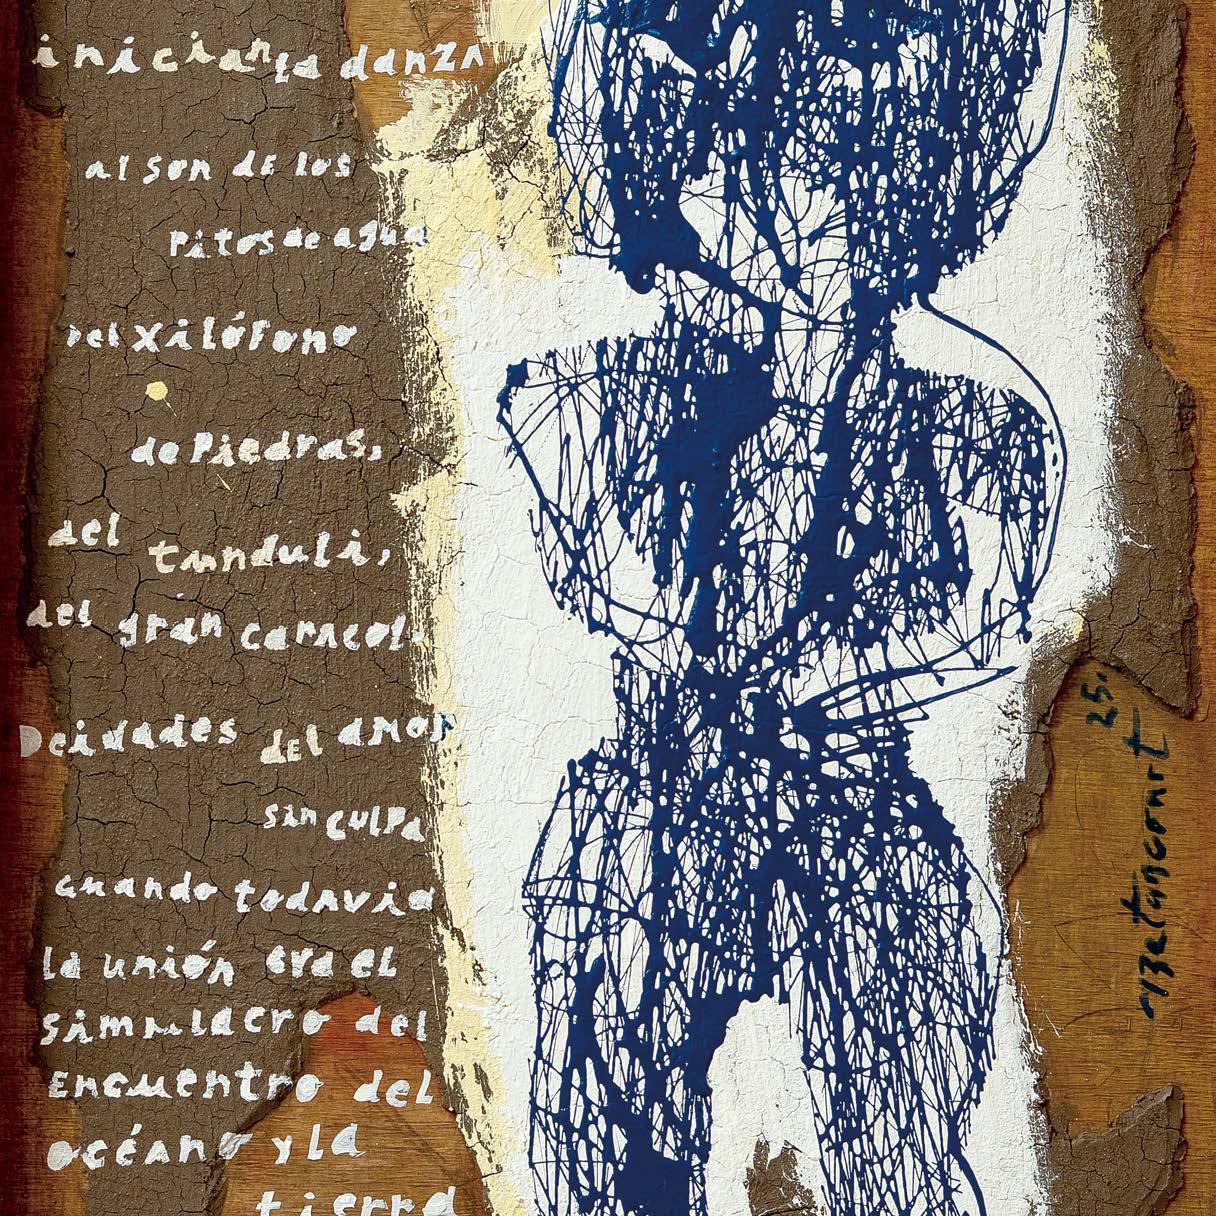 inician la danza
al son de los
pitos de agua
del xilófono
de piedras,
del tunduli,
del gran caracol.
Deidades del amor
sin culpa
cuando todavía
la unión era el
simulacro del
encuentro del
océano y la
tierra
25.